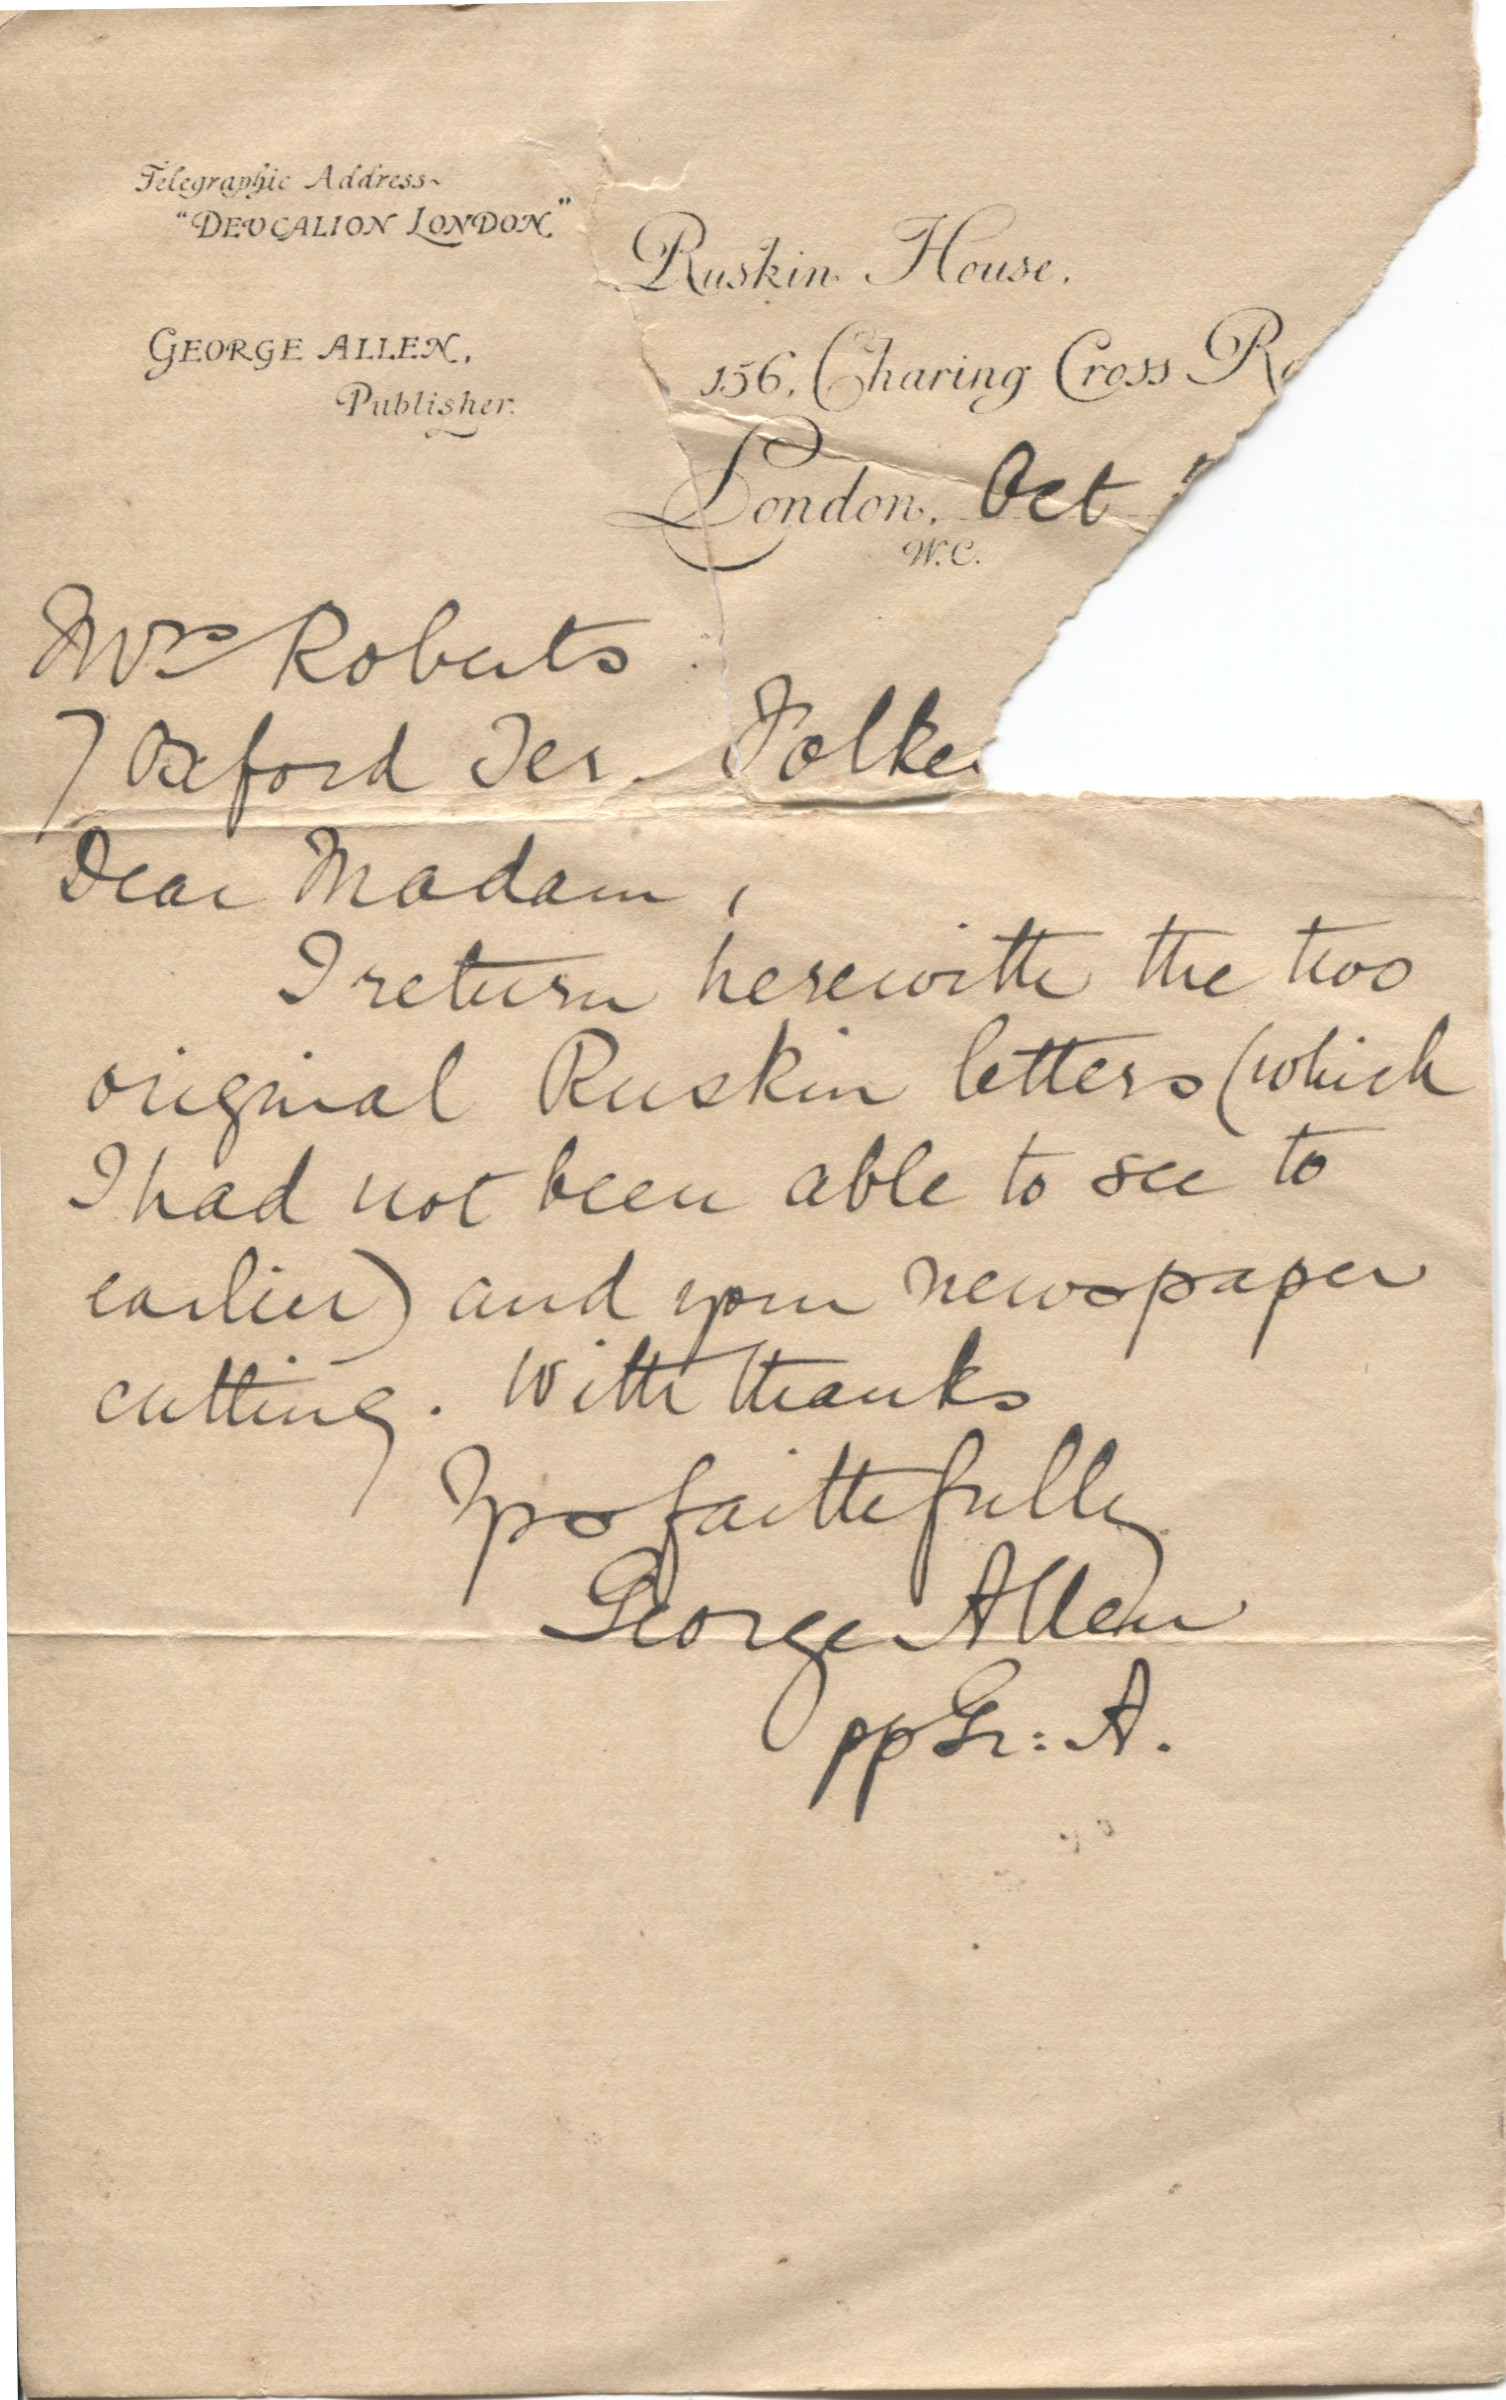 Telegraphic Address~
"DEUCALION LONDON."
GEORGE ALLEN,
Publisher.
Ruskin House,
156, Charing Cross Ro
London, Oct
W.C.
Mrs Roberts
7 Oxford Ter. Folke
Dear Madam,
I return herewith the two
original Ruskin letters (which
I had not been able to see to
earlier) and your newspaper
cutting. With thanks
Yrs faithfully
George Allen
pp Gr: A.